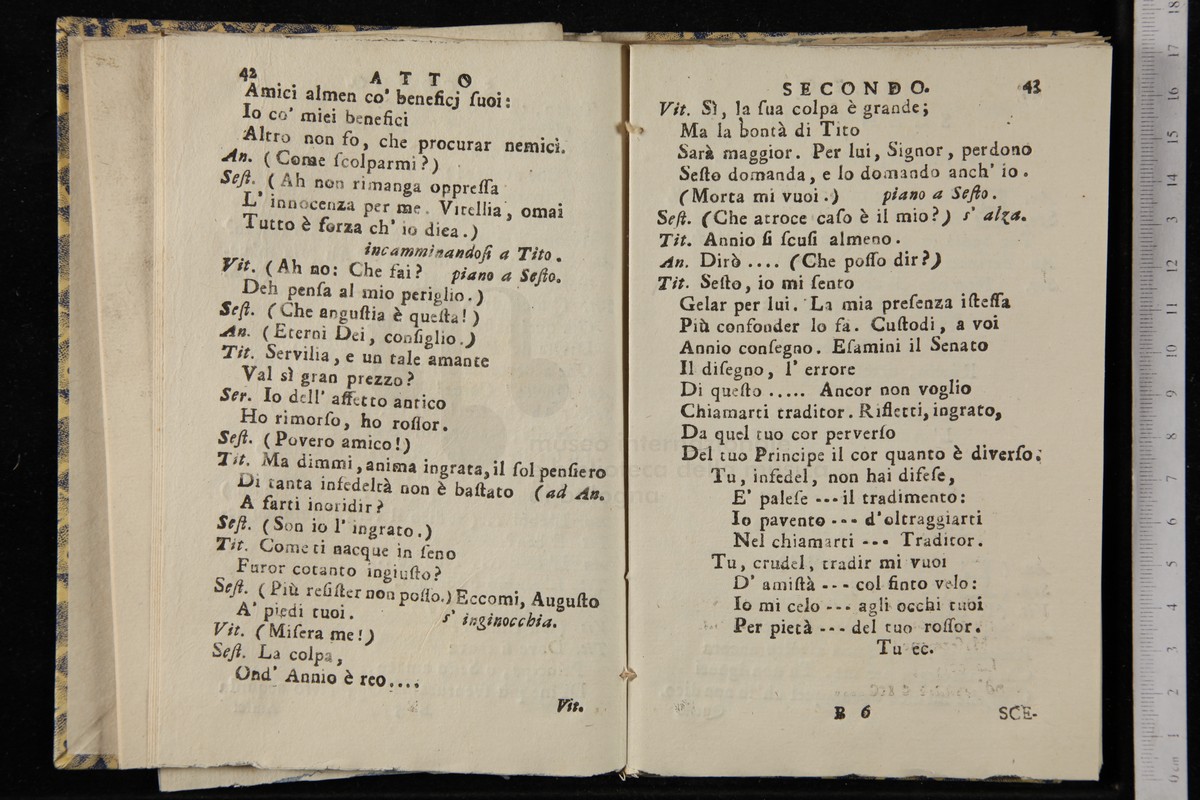 42 ATTO
Amici almen co' beneficj ſuoi:
Io co' miei benefici
Altro non fo, che procurar nemici.
An. (Come ſcolparmi?)
Seſt. (Ah non rimanga oppreſſa
L' innocenza per me. Vitellia, omai
Tutto è forza ch' io dica.)
incamminandoſi a Tito.
Vit. (Ah no: Che fai? piano a Seſto.
Deh penſa al mio periglio.)
Seſt. (Che anguſtia è queſta!)
An. (Eterni Dei, conſiglio.)
Tit. Servilia, e un tale amante
Val sì gran prezzo?
Ser. Io dell' affetto antico
Ho rimorſo, ho roſſor.
Seſt. (Povero amico!)
Tit. Ma dimmi, anima ingrata, il ſol penſiero
Di tanta infedeltà non è baſtato (ad An.
A farti inoridir?
Seſt. (Son io l' ingrato.)
Tit. Come ti nacque in ſeno
Furor cotanto ingiuſto?
Seſt. (Più reſiſter non poſſo.) Eccomi, Auguſto
A' piedi tuoi. s' inginocchia.
Vit. (Miſera me!)
Seſt. La colpa,
Ond' Annio è reo....
Vit.
SECONDO. 43
Vit. Sì, la ſua colpa è grande;
Ma la bontà di Tito
Sarà maggior. Per lui, Signor, perdono
Seſto domanda, e lo domando anch' io.
(Morta mi vuoi.) piano a Seſto.
Seſt. (Che atroce caſo è il mio?) s' alza.
Tit. Annio ſi ſcuſi almeno.
An. Dirò .... (Che poſſo dir?)
Tit. Seſto, io mi ſento
Gelar per lui. La mia preſenza iſteſſa
Più confonder lo fa. Cuſtodi, a voi
Annio conſegno. Eſamini il Senato
Il diſegno, l' errore
Di queſto ..... Ancor non voglio
Chiamarti traditor. Rifletti, ingrato,
Da quel tuo cor perverſo
Del tuo Principe il cor quanto è diverſo.
Tu, infedel, non hai difeſe,
E' paleſe --- il tradimento:
Io pavento --- d'oltraggiarti
Nel chiamarti --- Traditor.
Tu, crudel, tradir mi vuoi
D' amiſtà --- col finto velo:
Io mi celo --- agli occhi tuoi
Per pietà --- del tuo roſſor.
Tu ec.
B 6 SCE-